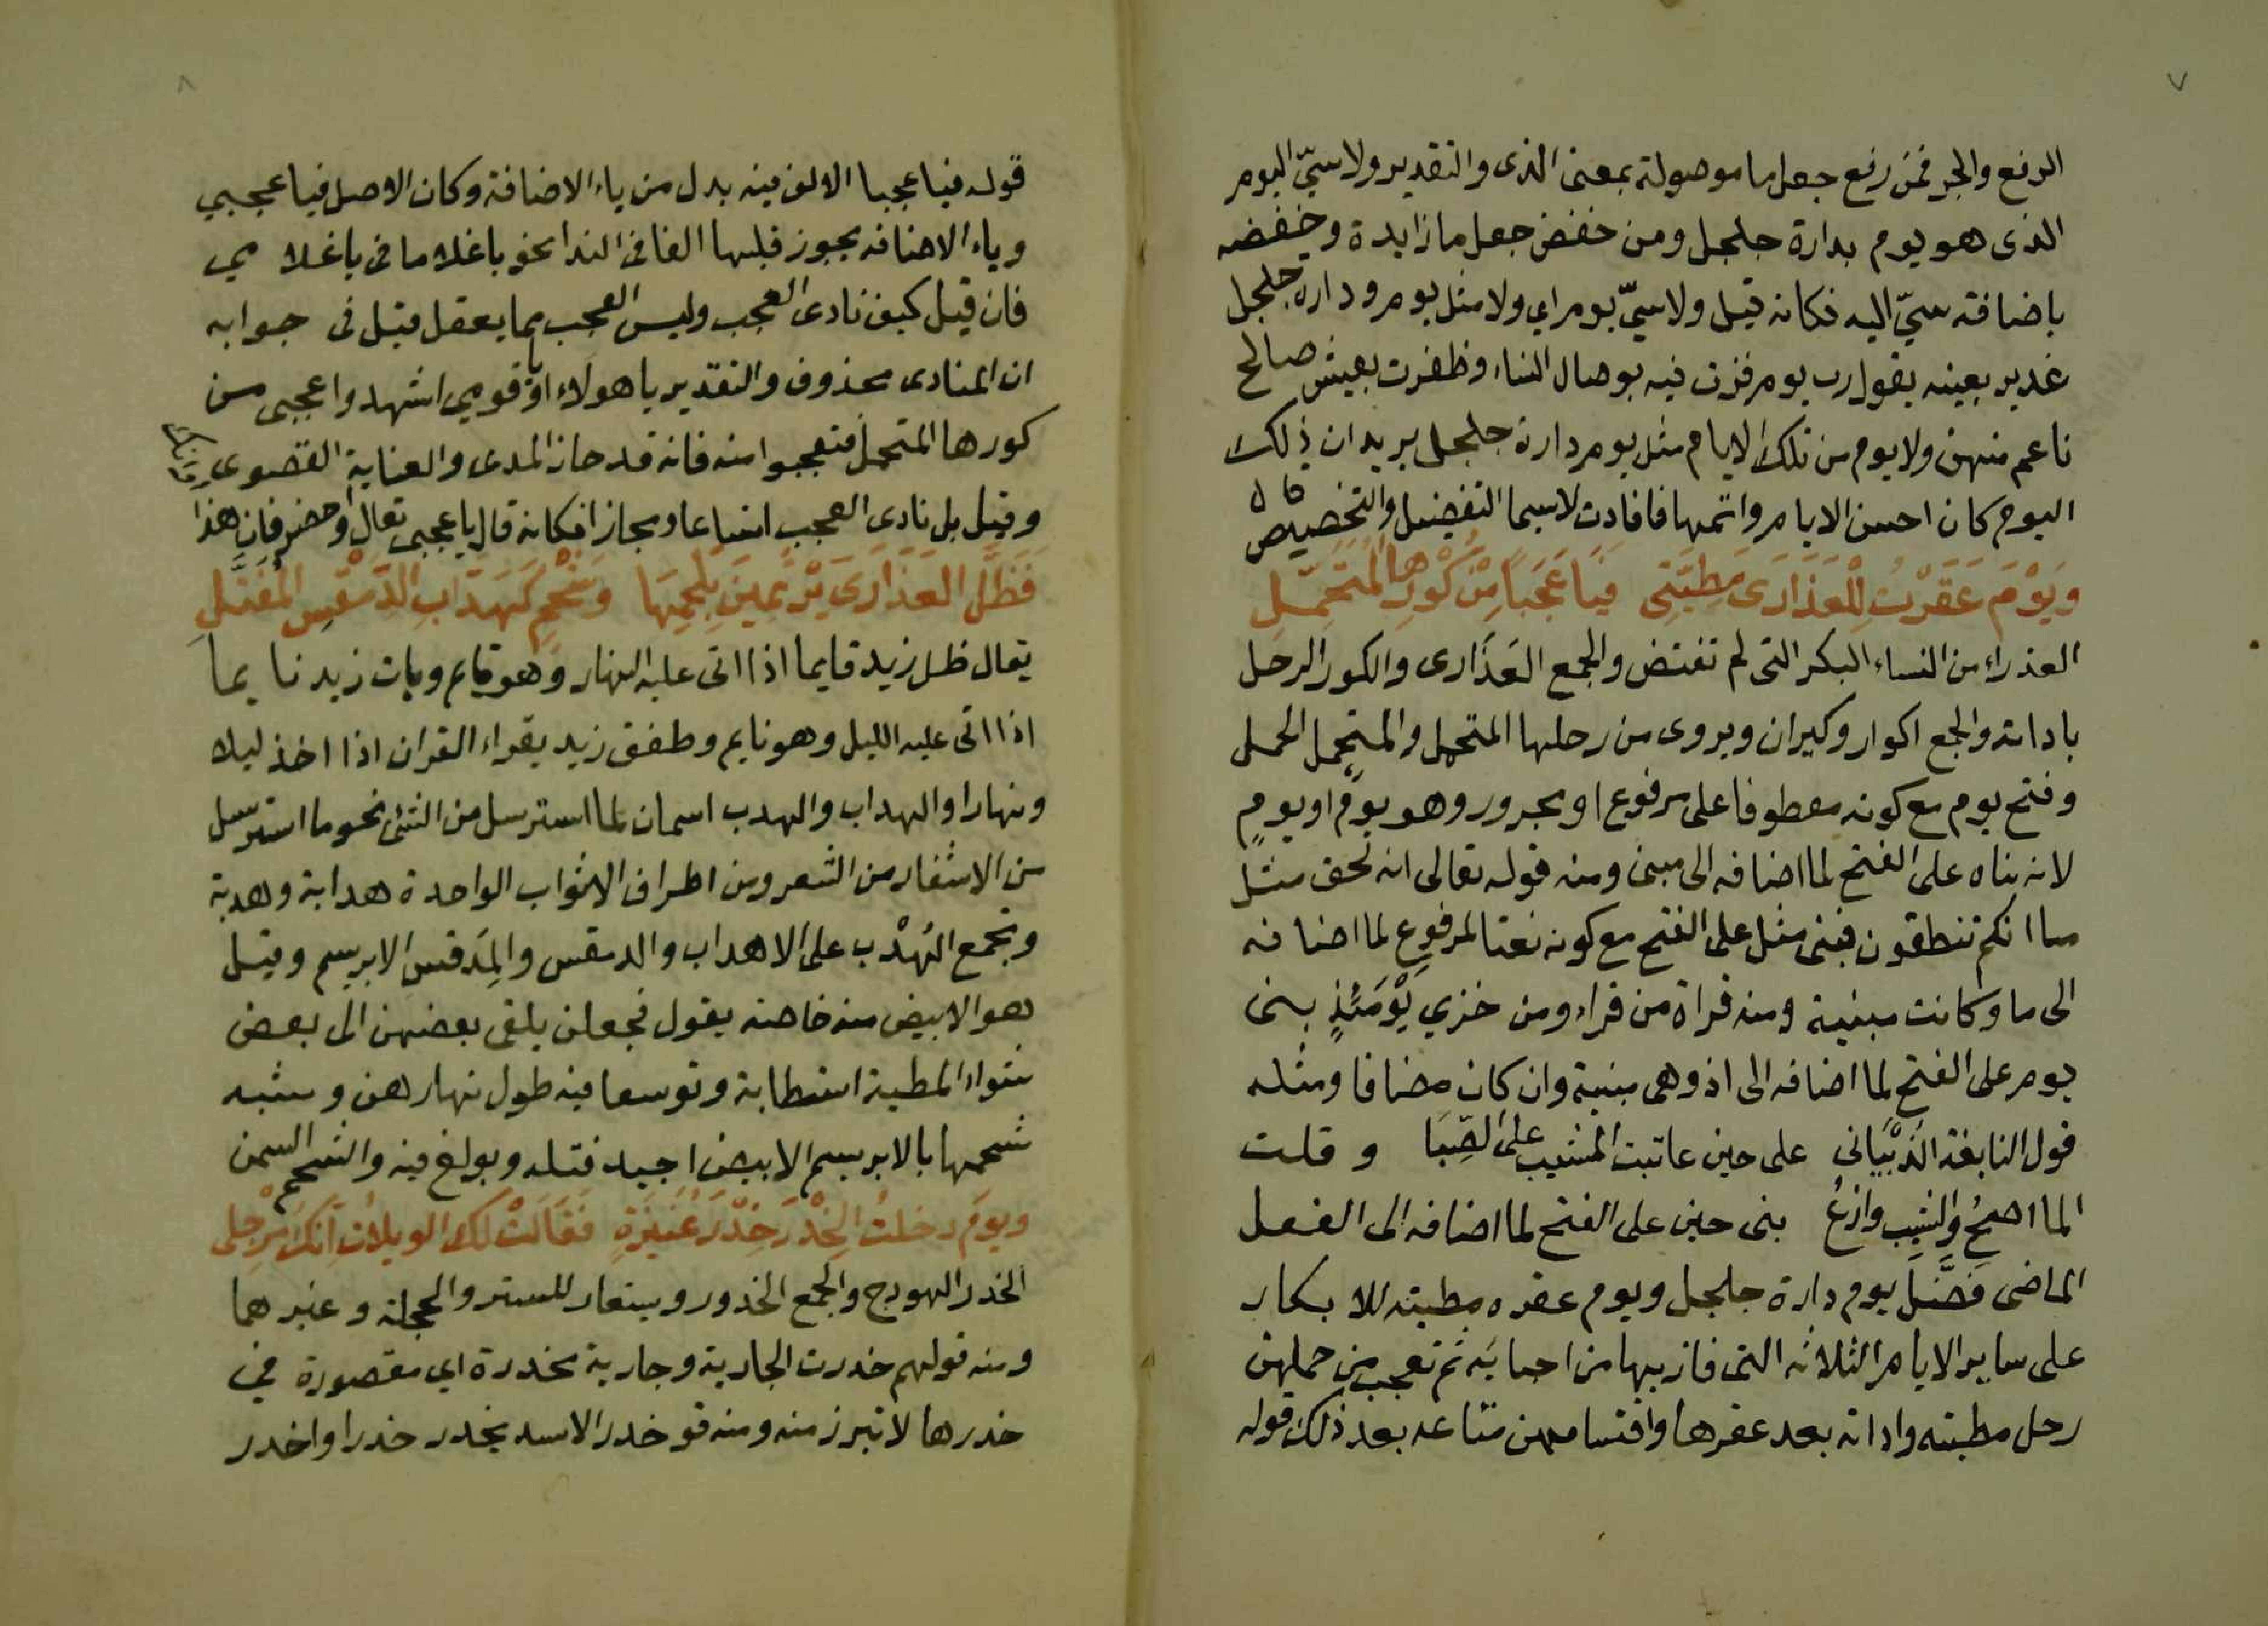 ٧
الرفع والجر فمن رفع جعل ما موصولة بمعنى الذى والتقدير ولاسيّ اليوم
الذى هو يوم بدارة جلجل ومن خفض جعل ما زايدة وخفضه
باضافة سيّ اليه فكانه قيل ولاسيّ يوم اي ولا مثل يوم ودارة جلجل
غدير بعينه يقول رب يوم فزت فيه بوصال النساء وظفرت بعيش صالح
ناعم منهن ولا يوم من تلك الايام مثل يوم دارة جلجل يريد ان ذلك
اليوم كان احسن الايام واتمها فافادت لاسيما التفضيل والتخصيص قال
وَيَوْمَ عَقَرْتُ لِلْعَذَارَى مَطِيَّتِى فَيَا عَجَبًا مِنْ كُورِهَا الْمُتَحَمِّلِ
العذراء من النساء البكر التى لم تفتض والجمع العَذَارى والكور الرحل
باداته والجمع اكوار وكيران ويروى من رحلها المتحمل والمتحمل الحمل
وفتح يوم مع كونه معطوفا على مرفوع او مجرور وهو يومٌ او يومٍ
لانه بناه على الفتح لما اضافه الى مبنى ومنه قوله تعالى انه لحق مثل
ما انكم تنطقون فبنى مثل على الفتح مع كونه نعتا لمرفوع لما اضافه
الى ما وكانت مبنية ومنه قراة من قراء ومن خزي يَوْمَئِذٍ بنى
يوم على الفتح لما اضافه الى اذ وهى مبنية وان كان مضافا ومثله
قول النابغة الذبْيَانى على حين عاتبت المشيب على الصِّبَا وقلت
الما اصحُ والشيب وازعُ بنى حين على الفتح لما اضافه الى الفعل
الماضى فضّل يوم دارة جلجل ويوم عقره مطيته للابكار
على ساير الايام الثلاثه التى فاز بها من احبايه ثم تعجب من حملهن
رحل مطيته واداته بعد عقرها واقتسامهن متاعه بعد ذلك قوله
٨
قوله فيا عجبا الالف فيه بدل من ياء الاضافة وكان الاصل فيا عجبي
وياء الاضافه يجوز قلبها الفا فى الندا نحو يا غلاما فى يا غلامي
فان قيل كيف نادى العجب وليس العجب مما يعقل قيل فى جوابه
ان المنادى محذوف والتقدير يا هولاء او يا قومي اشهدوا عجبى من
كورها المتحمل فتعجبوا منه فانه قد جاز المدى والغاية القصوى
وقيل بل نادى العجب اتساعا ومجازا فكانه قال يا عجبى تعال واحضر فان هذا
فَظَلَّ العَذَارَى يَرْتَمِينَ بِلَحْمِهَا وَشَحْمٍ كَهَدَّابِ الدِّمَقْسِ المُفَتَّلِ
يقال ظل زيد قايما اذا اتى عليه النهار وهو قايم وبات زيد نايما
اذا اتى عليه الليل وهو نايم وطفق زيد يقراء القران اذا اخذ ليلا
ونهارا والهداب والهدب اسمان لما استرسل من الشئ نحو ما استرسل
من الاشفار من الشعر ومن اطراف الاثواب الواحدة هدابة وهدبة
وتجمع الهُدْب على الاهداب والدمقس والمِدَقس الابريسم وقيل
هو الابيض منه خاصة يقول فجعلن يلقى بعضهن الى بعض
شواء المطية استطابة وتوسعا فيه طول نهارهن وشبه
شحمها بالابريسم الابيض اجيد فتله وبولغ فيه والشحم السمن
ويومَ دخلتُ الخِدْرَ خِدْرَ عُنَيْزَةٍ فَقَالَتْ لَكَ الويلاتُ اِنَّكَ مُرْجِلى
الخدر الهودج والجمع الخدور ويستعار للستر والحجلة وغيرهما
ومنه قولهم خدرت الجارية وجارية مخدرة اي مقصورة في
خدرها لا تبرز منه ومنه قو خدر الاسد يخدر خدرا واخدر